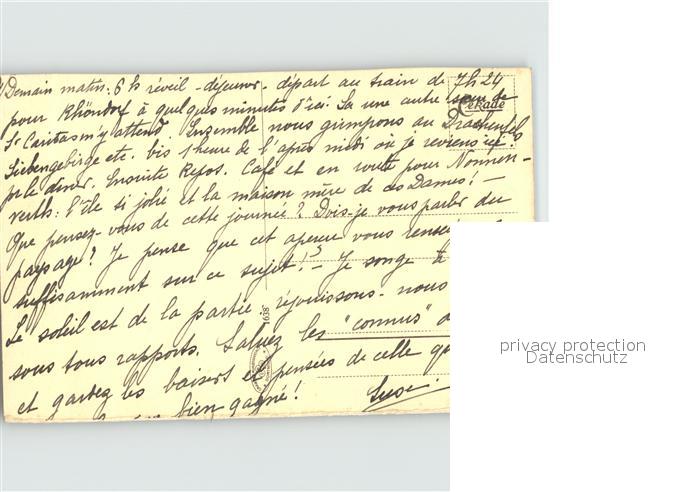 Demain matin: 6 h réveil - déjeuner - départ au train de 7h24
pour Rhöndorf à quelques minutes d'ici. Là une autre sœur de
St Caritas m'y attend. Ensemble nous grimpons au Drachenfels
Siebengebirge etc. bis 1 heure de l'après midi où je reviens ici
pr le dîner. Ensuite Repos. Café et en route pour Nonnen-
werth: l'île si jolie et la maison mère de ces Dames! -
Que pensez-vous de cette journée? Dois-je vous parler du
paysage? Je pense que cet aperçu vous
suffisamment sur ce sujet! - Je songe à
Le soleil est de la partie, réjouissons-nous
sous tous rapports. Saluez les "connus"
et gardez les baisers et pensées de celle
bien gagné!
Cekade
1638
privacy protection
Datenschutz